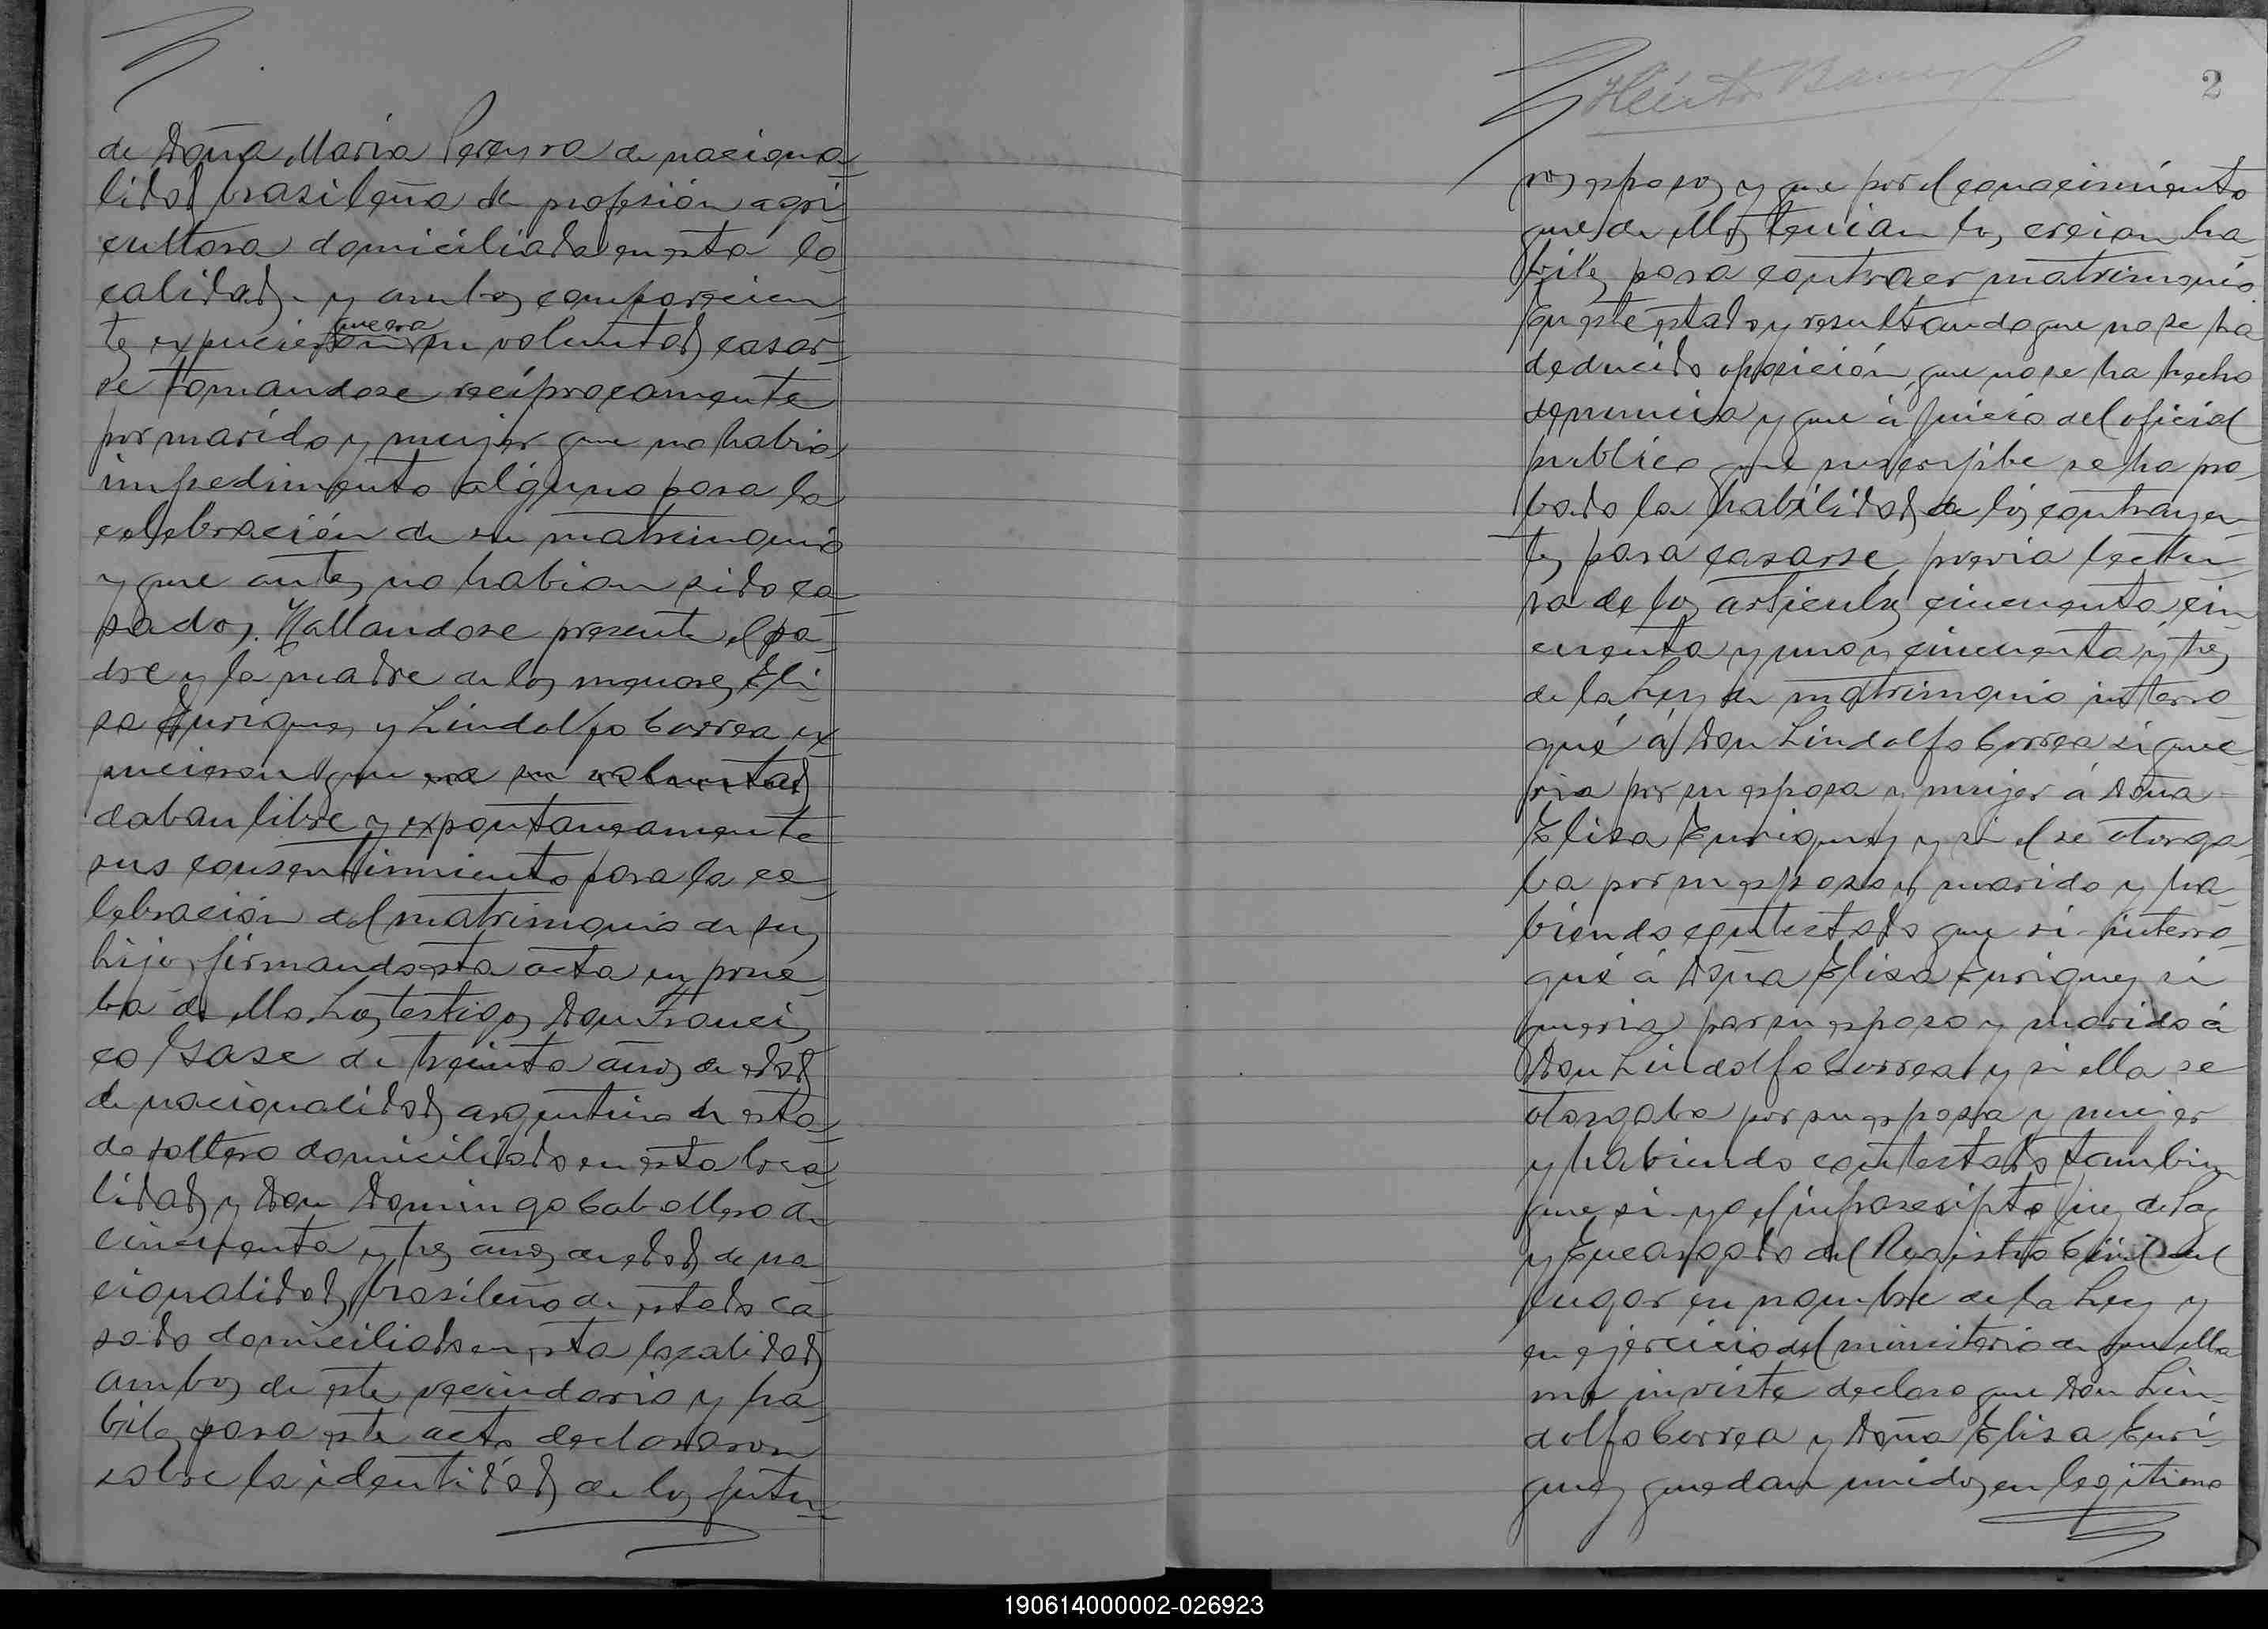 de Doña Maria Pereyra de naciona
lidad brasileña de profesión agri
cultora domiciliada en esta lo
calidad y ambos comparecien
que era
tes expucieron su voluntad casar
se tomandose recíprocamente
por marido y mujer que no habia
impedimento alguno para la
celebración de su matrimonio
y que antes no habian sido ca
sados. Hallandose presente el pa
dre y la madre de los menores Eli
sa Euriques y Lindolfo Correa ex
pucieron que era su voluntad
daban libre y expontaneamente
sus consentimiento para la ce
lebración del matrimonio de sus
hijos firmando esta acta en prue
ba de ello. Los testigos Don Francis
co de treinta años de edad
de nacionalidad argentina de esta
do soltero domiciliado en esta loca
lidad y Don Domingo Caballero de
cincuenta y tres años de edad de na
cionalidad brasileño de estado ca
sado domiciliado en esta localidad
ambos de este vecindario y ha
biles para este acto declararon
sobre la identidad de los futu
2
Héctor
ros esposos y que por el conocimiento
que de ellos tenian los creian ha
biles para contraer matrimonio
En este estado y resultando que no se ha
deducido oposición, que no se ha hecho
denuncia y que á juicio del oficial
publico que suscribe se ha pro
bado la habilidad de los contrayen
tes para casarse, previa lectu
ra de los articulos cincuenta cin
cuenta y uno y cincuenta y tres
de la Ley de matrimonio interro
gué á Don Lindolfo Correa si que
ria por su esposa y mujer á Doña
Elisa Euriques y si el se otorga
ba por su esposo y marido y ha
biendo contestado que si interro
gué á Doña Elisa Euriques si
queria por su esposo y marido á
Don Lindolfo Correa y si ella se
otorgaba por su esposa y mujer
y habiendo contestado tambien
que si yo el infrascripto Juez de Paz
y Encargado del Registro Civil del
lugar en nombre de la Ley y
en ejercicio del ministerio de que ella
me inviste declaro que Don Lin
dolfo Correa y Doña Elisa Euri
ques quedan unidos en legitimo
190614000002-026923